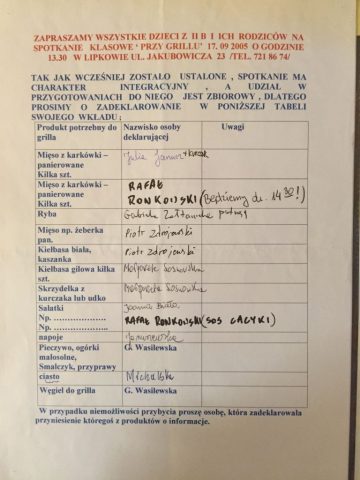 ZAPRASZAMY WSZYSTKIE DZIECI Z II B I ICH RODZICÓW NA
SPOTKANIE KLASOWE ‘ PRZY GRILLU’ 17. 09 2005 O GODZINIE
13.30 W LIPKOWIE UL. JAKUBOWICZA 23 /TEL. 721 86 74/
TAK JAK WCZEŚNIEJ ZOSTAŁO USTALONE , SPOTKANIE MA
CHARAKTER INTEGRACYJNY , A UDZIAŁ W
PRZYGOTOWANIACH DO NIEGO JEST ZBIOROWY , DLATEGO
PROSIMY O ZADEKLAROWANIE W PONIŻSZEJ TABELI
SWOJEGO WKŁADU ;
Produkt potrzebny do grilla Nazwisko osoby deklarującej Uwagi
Mięso z karkówki – panierowane Kilka szt. Julia
Mięso z karkówki – panierowane Kilka szt. RAFAŁ RONKOWSKI (Będziemy ok. 14 30!)
Ryba Gabriela
Mięso np. żeberka pan. Piotr Zdrojewski
Kiełbasa biała, kaszanka Piotr Zdrojewski
Kiełbasa gilowa kilka szt. Małgorzata Sosnowska
Skrzydełka z kurczaka lub udko Małgorzata Sosnowska
Sałatki Joanna
Np. ………………..
Np. ……………….. RAFAŁ RONKOWSKI (SOS CACYKI)
napoje
Pieczywo, ogórki małosolne, Smalczyk, przyprawy G. Wasilewska
ciasto Michalska
Węgiel do grilla G. Wasilewska
W przypadku niemożliwości przybycia proszę osobę, która zadeklarowała
przyniesienie któregoś z produktów o informacje.